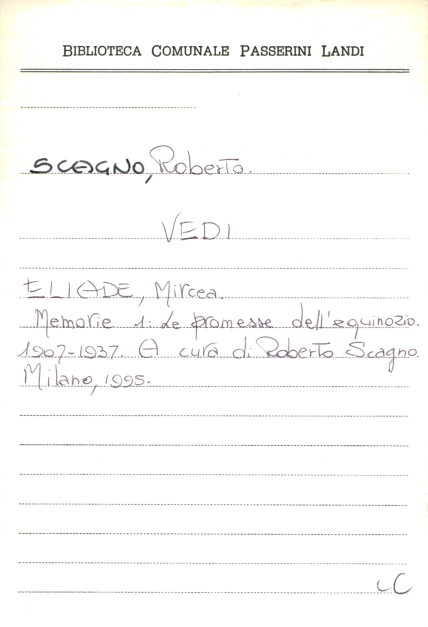 BIBLIOTECA COMUNALE PASSERINI LANDI
SCAGNO, Roberto.
VEDI
ELIADE, Mircea.
Memorie 1: Le promesse dell'equinozio.
1907-1937. A cura di Roberto Scagno.
Milano, 1995.
LC